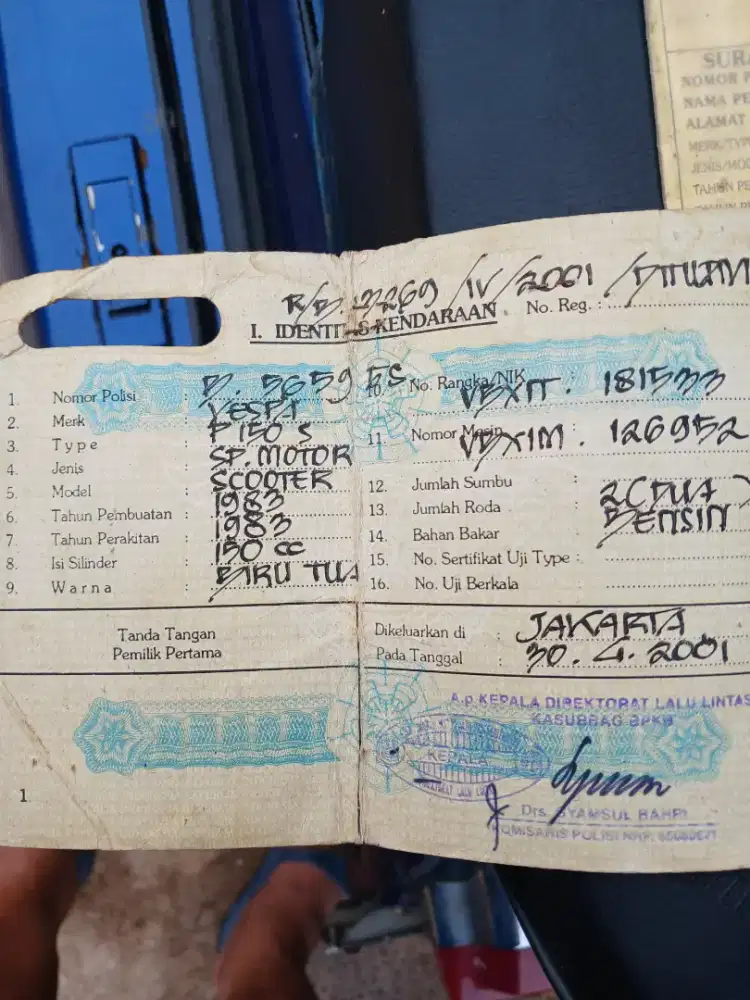 SURA
NOMOR P
NAMA PE
ALAMAT
MERK/TYP
JENIS/MOD
TAHUN PE
R/B. 3269 /IV/2001 /DITLAN
I. IDENTITAS KENDARAAN No. Reg. :
1. Nomor Polisi : B. 5659 ES
2. Merk : VESPA
3. Type : P 150 S
4. Jenis : SP. MOTOR
5. Model : SCOOTER
6. Tahun Pembuatan : 1983
7. Tahun Perakitan : 1983
8. Isi Silinder : 150 cc
9. Warna : BIRU TUA
10. No. Rangka/NIK VBX1T. 181533
11. Nomor Mesin VBX1M. 126952
12. Jumlah Sumbu :
13. Jumlah Roda : 2 (DUA)
14. Bahan Bakar : BENSIN
15. No. Sertifikat Uji Type :
16. No. Uji Berkala
Tanda Tangan
Pemilik Pertama
Dikeluarkan di : JAKARTA
Pada Tanggal : 30. 4. 2001
1.
A.p. KEPALA DIREKTORAT LALU LINTAS
KASUBBAG BPKB
KEPALA
Drs. SYAMSUL BAHRI
KOMISARIS POLISI NRP.